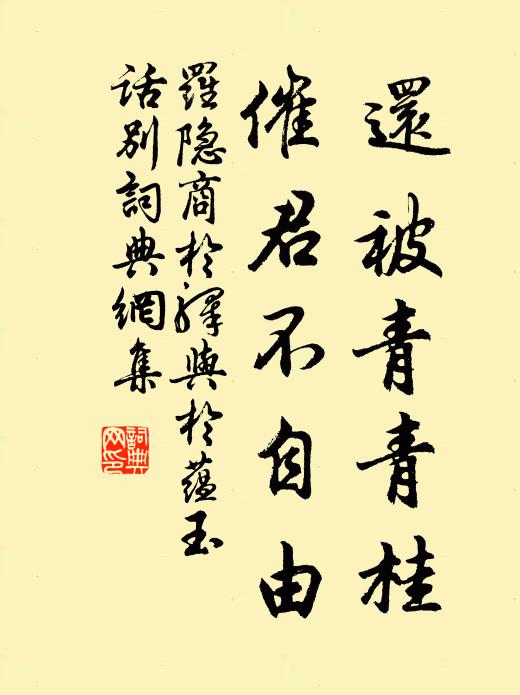 還被青青桂
催君不自由
羅隐商於驛與於蕴玉
話别詞典網集
詞典
网印